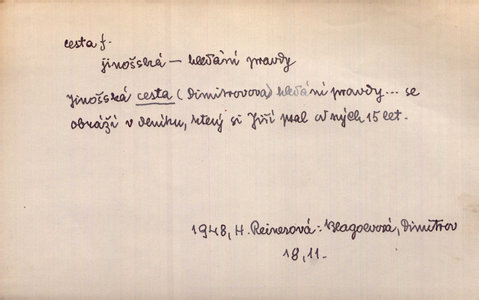 cesta f.
jinošská – hledání pravdy
Jinošská cesta (Dimitrovova) hledání pravdy... se
obráží v deníku, který si Jiří psal od svých 15 let.
1948, H. Reinerová: Blagoevová, Dimitrov
18, 11.